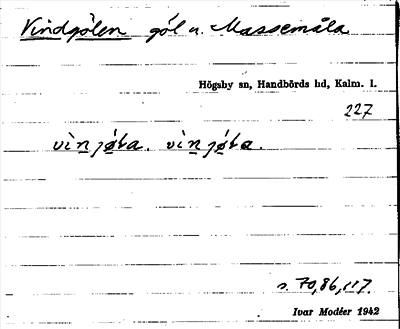 Vindgölen göl u. Massemåla
Högsby sn, Handbörds hd, Kalm. l.
227
s. 70, 86, 117.
Ivar Modéer 1942